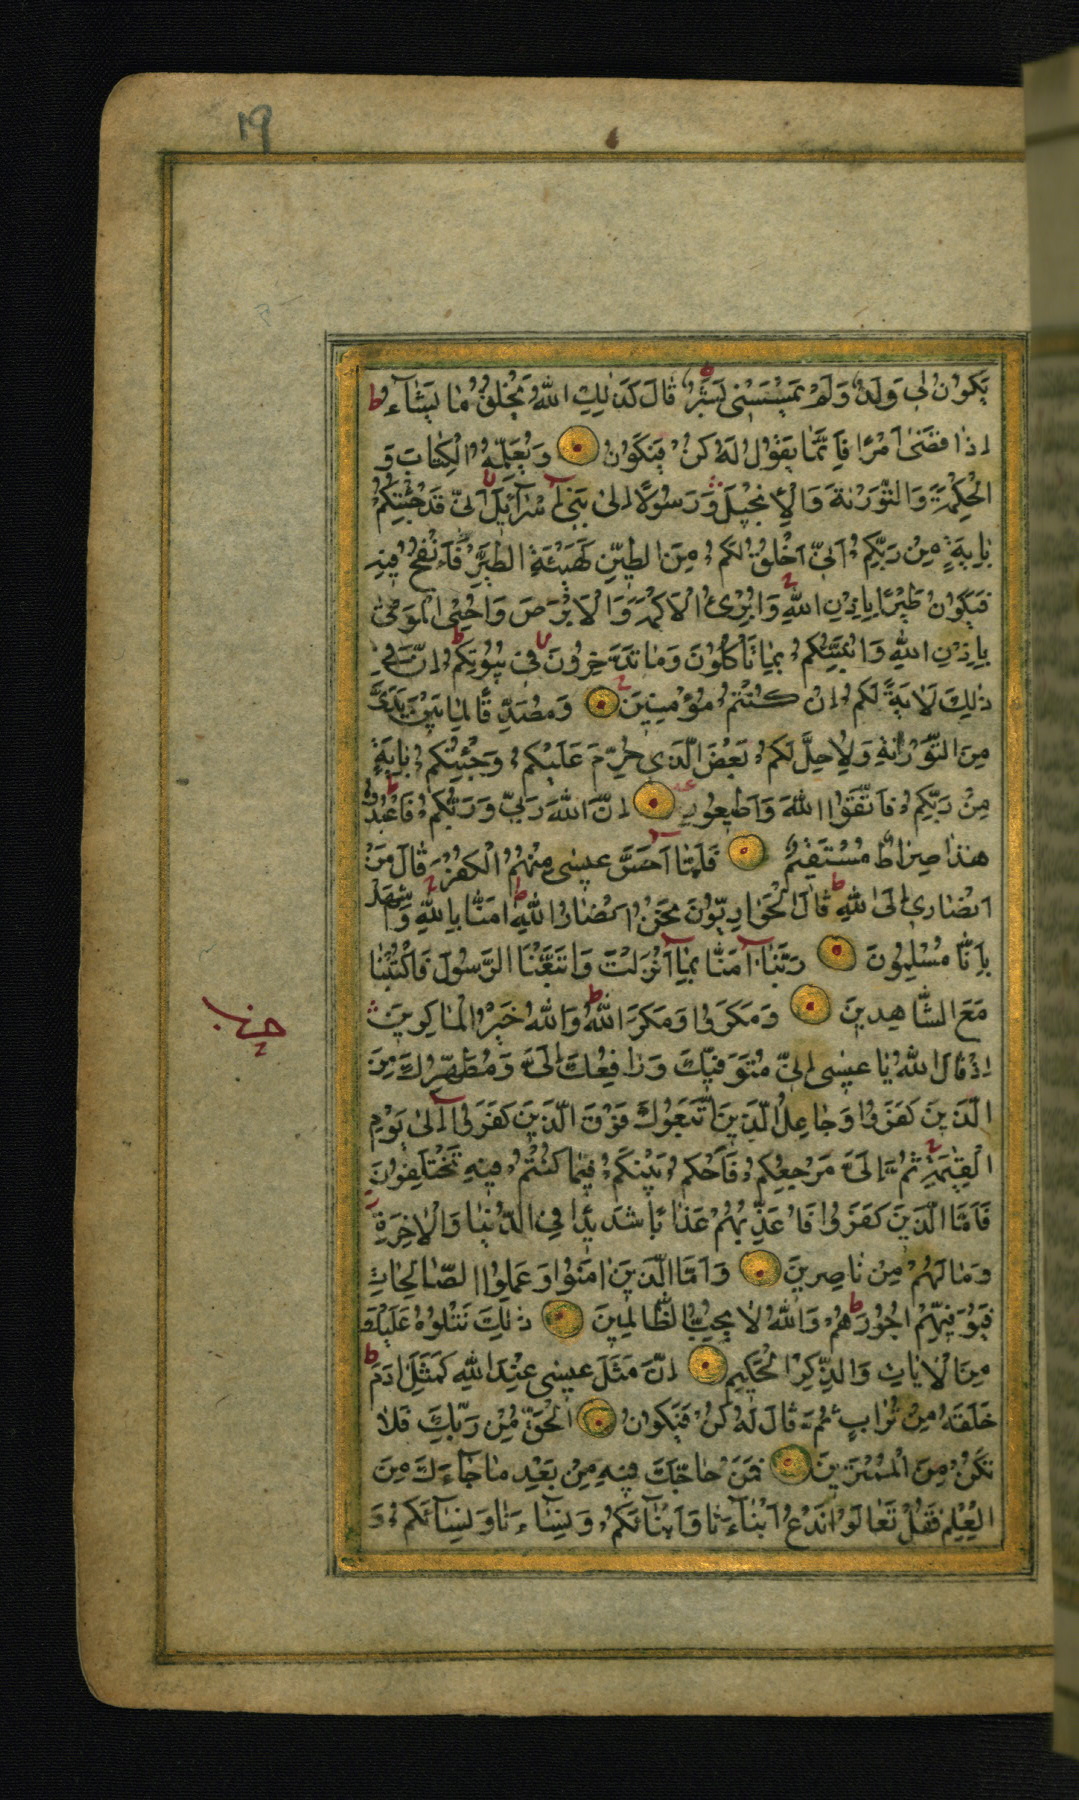 ١٩
يَكُونُ لِي وَلَدٌ وَلَمْ يَمْسَسْنِي بَشَرٌ قَالَ كَذٰلِكِ اللّٰهُ يَخْلُقُ مَا يَشَآءُ ط
اِذَا قَضٰى اَمْرًا فَاِنَّمَا يَقُولُ لَهُ كُنْ فَيَكُونُ وَيُعَلِّمُهُ الْكِتَابَ وَ
الْحِكْمَةَ وَالتَّوْرٰىةَ وَالْاِنْجِيلَ وَرَسُولًا اِلٰى بَنِي اِسْرَآئِيلَ اَنِّي قَدْ جِئْتُكُمْ
بِاٰيَةٍ مِنْ رَبِّكُمْ اَنِّي اَخْلُقُ لَكُمْ مِنَ الطِّينِ كَهَيْئَةِ الطَّيْرِ فَاَنْفُخُ فِيهِ
فَيَكُونُ طَيْرًا بِاِذْنِ اللّٰهِ وَاُبْرِئُ الْاَكْمَهَ وَالْاَبْرَصَ وَاُحْيِي الْمَوْتٰى
بِاِذْنِ اللّٰهِ وَاُنَبِّئُكُمْ بِمَا تَاْكُلُونَ وَمَا تَدَّخِرُونَ فِي بُيُوتِكُمْ اِنَّ فِي
ذٰلِكَ لَاٰيَةً لَكُمْ اِنْ كُنْتُمْ مُؤْمِنِينَ وَمُصَدِّقًا لِمَا بَيْنَ يَدَيَّ
مِنَ التَّوْرٰىةِ وَلِاُحِلَّ لَكُمْ بَعْضَ الَّذِي حُرِّمَ عَلَيْكُمْ وَجِئْتُكُمْ بِاٰيَةٍ
مِنْ رَبِّكُمْ فَاتَّقُوا اللّٰهَ وَاَطِيعُونِ اِنَّ اللّٰهَ رَبِّي وَرَبُّكُمْ فَاعْبُدُوهُ
هٰذَا صِرَاطٌ مُسْتَقِيمٌ فَلَمَّا اَحَسَّ عِيسٰى مِنْهُمُ الْكُفْرَ قَالَ مَنْ
اَنْصَارِي اِلَى اللّٰهِ قَالَ الْحَوَارِيُّونَ نَحْنُ اَنْصَارُ اللّٰهِ اٰمَنَّا بِاللّٰهِ وَاشْهَدْ
بِاَنَّا مُسْلِمُونَ رَبَّنَا اٰمَنَّا بِمَا اَنْزَلْتَ وَاتَّبَعْنَا الرَّسُولَ فَاكْتُبْنَا
مَعَ الشَّاهِدِينَ وَمَكَرُوا وَمَكَرَ اللّٰهُ وَاللّٰهُ خَيْرُ الْمَاكِرِينَ
اِذْ قَالَ اللّٰهُ يَا عِيسٰى اِنِّي مُتَوَفِّيكَ وَرَافِعُكَ اِلَيَّ وَمُطَهِّرُكَ مِنَ
الَّذِينَ كَفَرُوا وَجَاعِلُ الَّذِينَ اتَّبَعُوكَ فَوْقَ الَّذِينَ كَفَرُوا اِلٰى يَوْمِ
الْقِيٰمَةِ ثُمَّ اِلَيَّ مَرْجِعُكُمْ فَاَحْكُمُ بَيْنَكُمْ فِيمَا كُنْتُمْ فِيهِ تَخْتَلِفُونَ
فَاَمَّا الَّذِينَ كَفَرُوا فَاُعَذِّبُهُمْ عَذَابًا شَدِيدًا فِي الدُّنْيَا وَالْاٰخِرَةِ
وَمَا لَهُمْ مِنْ نَاصِرِينَ وَاَمَّا الَّذِينَ اٰمَنُوا وَعَمِلُوا الصَّالِحَاتِ
فَيُوَفِّيهِمْ اُجُورَهُمْ وَاللّٰهُ لَا يُحِبُّ الظَّالِمِينَ ذٰلِكَ نَتْلُوهُ عَلَيْكَ
مِنَ الْاٰيَاتِ وَالذِّكْرِ الْحَكِيمِ اِنَّ مَثَلَ عِيسٰى عِنْدَ اللّٰهِ كَمَثَلِ اٰدَمَ ط
خَلَقَهُ مِنْ تُرَابٍ ثُمَّ قَالَ لَهُ كُنْ فَيَكُونُ اَلْحَقُّ مِنْ رَبِّكَ فَلَا
تَكُنْ مِنَ الْمُمْتَرِينَ فَمَنْ حَاجَّكَ فِيهِ مِنْ بَعْدِ مَا جَاءَكَ مِنَ
الْعِلْمِ فَقُلْ تَعَالَوْا نَدْعُ اَبْنَآءَنَا وَاَبْنَآئَكُمْ وَنِسَآءَنَا وَنِسَآئَكُمْ وَ
حزب